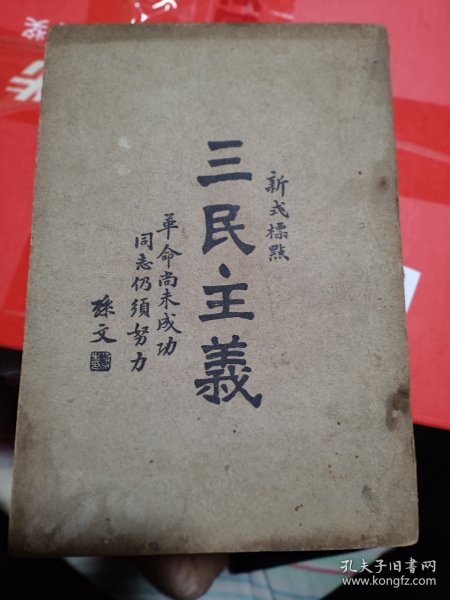 新式標點
三民主義
革命尚未成功
同志仍須努力
孫文
孔夫子旧书网
www.kongfz.com